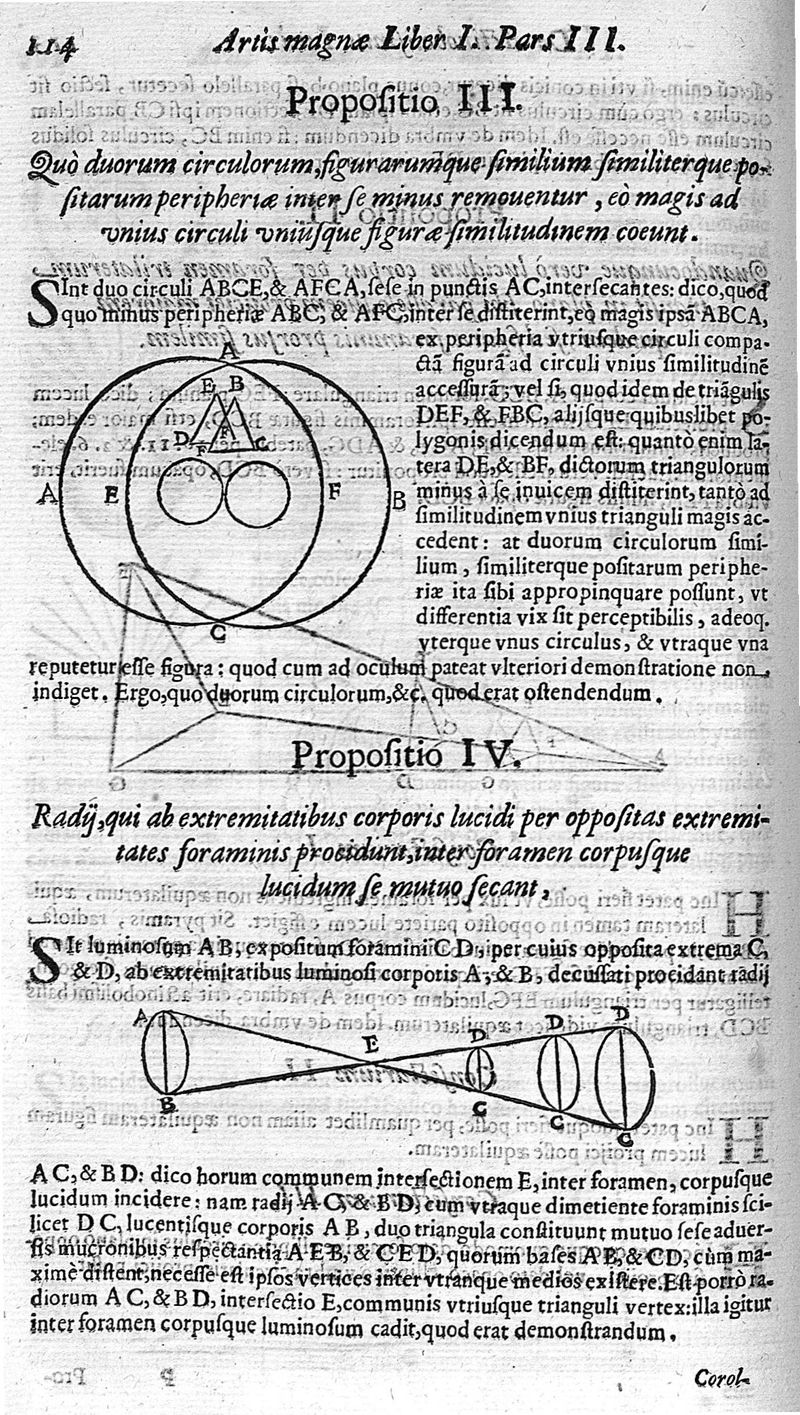 114 Artis magnæ Liber I. Pars III.
Propositio III.
Quò duorum circulorum, figurarumque similium similiterque po-
sitarum peripheriæ inter se minus remouentur, eò magis ad
vnius circuli vniusque figuræ similitudinem coeunt.
SInt duo circuli ABCE, & AFCA, sese in punctis AC, intersecantes: dico, quod
quo minus peripheriæ ABC, & AFC, inter se distiterint, eo magis ipsā ABCA,
ex peripheria vtriusque circuli compa-
ctā figurā ad circuli vnius similitudinē
accessurā; vel si, quod idem de triāgulis
DEF, & FBC, alijsque quibuslibet po-
lygonis dicendum est: quantò enim la-
tera DE, & BF, dictorum triangulorum
minus à se inuicem distiterint, tantò ad
similitudinem vnius trianguli magis ac-
cedent: at duorum circulorum simi-
lium, similiterque positarum periphe-
riæ ita sibi appropinquare possunt, vt
differentia vix sit perceptibilis, adeoq.
vterque vnus circulus, & vtraque vna
A
E B
D
F
C
A E F B
C
reputetur esse figura: quod cum ad oculum pateat vlteriori demonstratione non
indiget. Ergo, quo duorum circulorum, &c. quod erat ostendendum.
Propositio IV.
Radij, qui ab extremitatibus corporis lucidi per oppositas extremi-
tates foraminis procidunt, inter foramen corpusque
lucidum se mutuo secant,
SIt luminosum AB, expositum foramini CD, per cuius opposita extrema C,
& D, ab extremitatibus luminosi corporis A, & B, decussati procidant radij
A E D D D
B C C C
AC, & BD: dico horum communem intersectionem E, inter foramen, corpusque
lucidum incidere: nam radij AC, & BD, cum vtraque dimetiente foraminis sci-
licet DC, lucentisque corporis AB, duo triangula constituunt mutuo sese aduer-
sis mucronibus respectantia AEB, & CED, quorum bases AB, & CD, cùm ma-
ximè distent, necesse est ipsos vertices inter vtranque medios existere. Est porrò ra-
diorum AC, & BD, intersectio E, communis vtriusque trianguli vertex: illa igitur
inter foramen corpusque luminosum cadit, quod erat demonstrandum.
Corol-